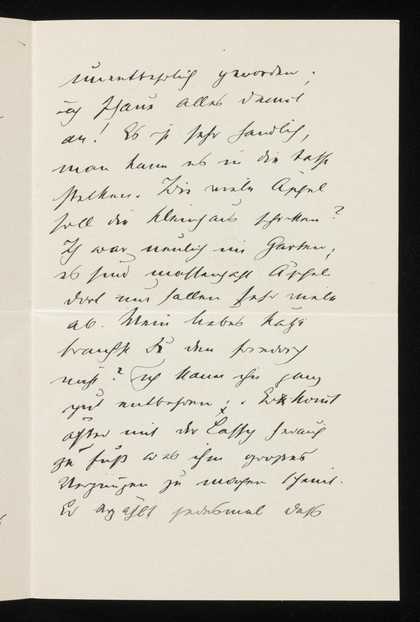 unentbehrlich geworden.
ich schaue alles damit
an! Es ist sehr handlich,
man kann es in die Tasche
stecken. Wie viele Äpfel
soll die Kleinhaus schicken?
Ich war neulich im Garten;
es sind massenhaft Äpfel
dort nur fallen sehr viele
ab. Mein liebes Käthe
brauchst Du den
nicht? Ich kann ihn ganz
gut entbehren; Er kommt
öfter mit der Lassy herauf
zu Fuß was ihm großes
Vergnügen zu machen scheint.
Er erzählt jedesmal daß